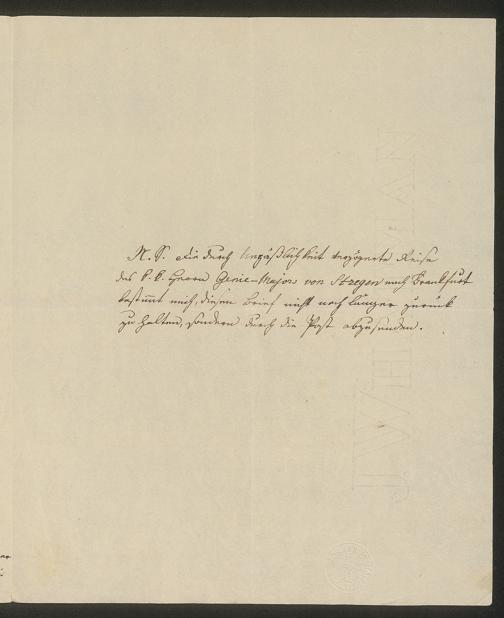 N. S. Die durch Unpäßlichkeit verzögerte Reise
des k. k. Herrn Genie-Majors von Stregen nach Frankfurt
bestimmt mich, diesen Brief nicht noch länger zurück
zu halten, sondern durch die Post abzusenden.
J WH